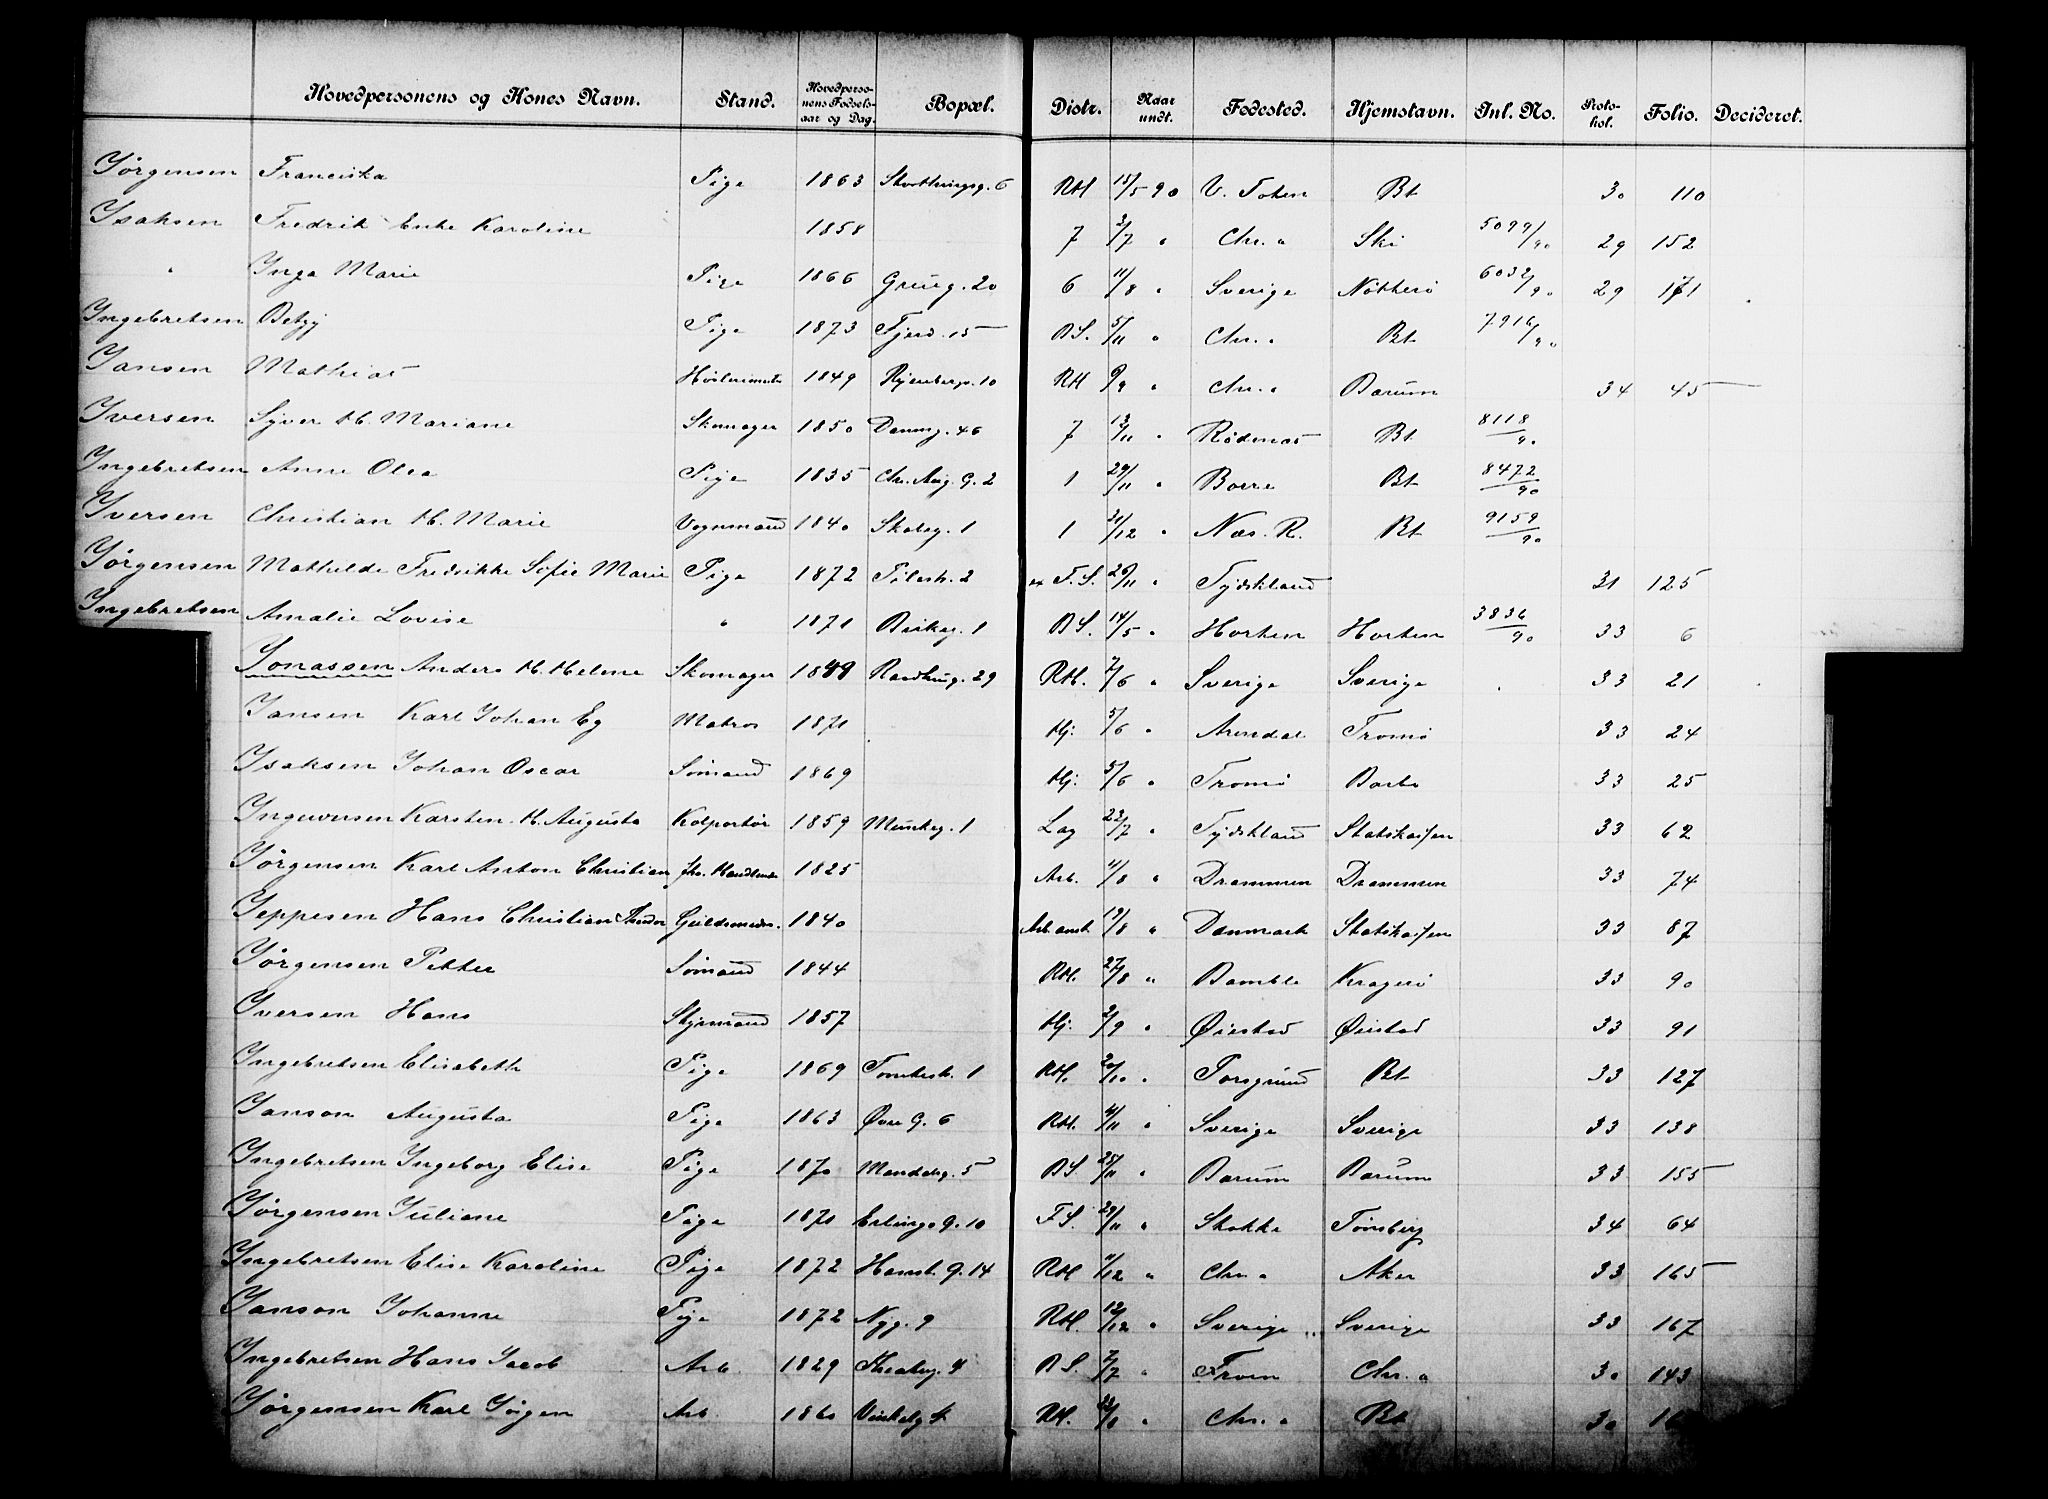 Hovedpersonens og Kones Navn. Stand. Hovedpersonens Fødselsaar og Dag. Bopæl. Distr. Naar undt. Fødested. Hjemstavn. Inl. No. Protokol. Folio. Decideret.
Jørgensen Franciska Pige 1863 6 RH 15/5 90 V. Toten Bt 30 110
Isaksen Fredrik Enke Karoline 1858 7 2/7 " Chr.a Ski 5099/90 29 152
" Inga Marie Pige 1866 Grüng. 20 6 11/8 " Sverige Nötterö 6032/90 29 171
Ingebretsen Betzy Pige 1873 Fjerd. 15 BS. 5/11 " Chr.a Bt 7916/90
Jansen Mathias 1849 10 RH 9/9 " Chr.a Bærum 34 45
Iversen Syver H. Mariane Skomager 1850 Danmg. 46 7 12/11 " Rödenæs Bt 8118/90
Ingebretsen Anne Olea Pige 1835 Chr. Aug. G. 2 1 29/11 " Borre Bt 8472/90
Iversen Christian H. Marie Vognmand 1840 Skoleg. 1 1 31/12 " Næs. R. Bt 9159/90
Jørgensen Mathilde Fredrikke Sofie Marie Pige 1872 Pilestr. 2 F.S. 26/11 " Tydskland 31 125
Ingebretsen Amalie Lovise " 1871 1 BS. 14/5 " Horten Horten 3836/90 33 6
Jonassen Anders H. Helene Skomager 1849 Raadhusg. 29 RH. 7/6 " Sverige Sverige 33 21
Jansen Karl Johan Eg Matros 1871 Hj. 5/6 " Arendal Tromö 33 24
Isaksen Johan Oscar Sømand 1869 Hj. 5/6 " Tromö Barbo 33 25
Karsten H. Augusta Kolportør 1859 Munkeg. 1 Lag 23/7 " Tydskland Statskassen 33 62
Jørgensen Karl Anton Christian fhv. Handlende 1825 Arb. 11/8 " Drammen Drammen 33 74
Jeppesen Hans Christian Theodor Guldsmedsv. 1840 Arb anst 19/8 " Danmark Statskassen 33 87
Jørgensen Petter Sømand 1844 RH. 27/8 " Bamble Kragerö 33 90
Iversen Hans Styrmand 1857 Hj. 2/9 " Øiestad Øiestad 33 91
Ingebretsen Elisabeth Pige 1869 Tomtestr. 1 RH. 20/10 " Porsgrund Bt 33 127
Janson Augusta Pige 1863 Øvre G. 6 RH. 4/11 " Sverige Sverige 33 138
Ingebretsen Ingeborg Elise Pige 1870 Mandalsg. 5 BS. 25/11 " Bærum Bærum 33 155
Jørgensen Juliane Pige 1871 Erlings G. 10 F.S. 29/11 " Stokke Tönsberg 34 64
Ingebretsen Elise Karoline Pige 1872 14 RH 11/12 " Chr.a Aker 33 165
Janson Johanne Pige 1872 Nyg. 9 RH. 12/12 " Sverige Sverige 33 167
Ingebretsen Hans Jacob Arb. 1829 Theaterg. 4 BS. 7/7 " Froen Chr.a 30 143
Jørgensen Karl Jörgen Arb. 1860 RH. " Chr.a Bt 30